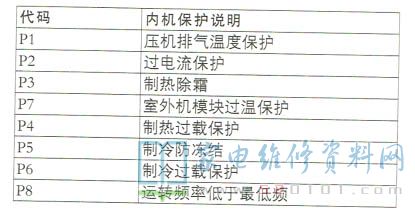 代码 内机保护说明
P1 压机排气温度保护
P2 过电流保护
P3 制热除霜
P7 室外机模块过温保护
P4 制热过载保护
P5 制冷防冻结
P6 制冷过载保护
P8 运转频率低于最低频
家电维修资料网